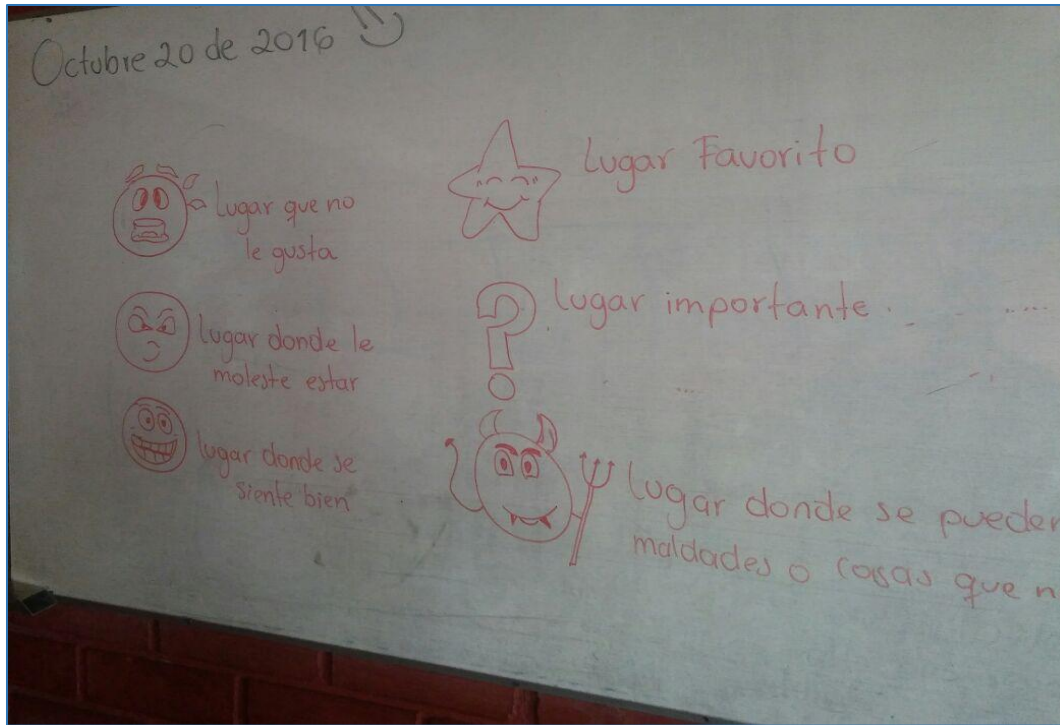 Octubre 20 de 2016
Lugar que no
le gusta
lugar donde le
moleste estar
lugar donde se
siente bien
Lugar Favorito
?
lugar importante.
lugar donde se pueden
maldades o cosas que n